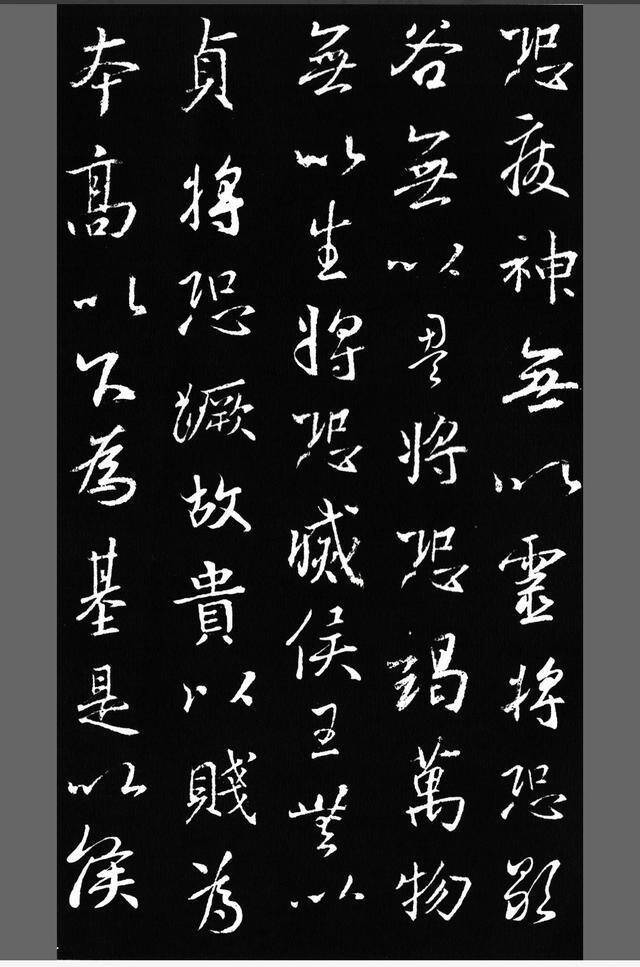 恐廢神無以靈將恐歇
谷無以盈將恐竭萬物
無以生將恐滅侯王無以
貞將恐蹶故貴以賤為
本高以下為基是以侯